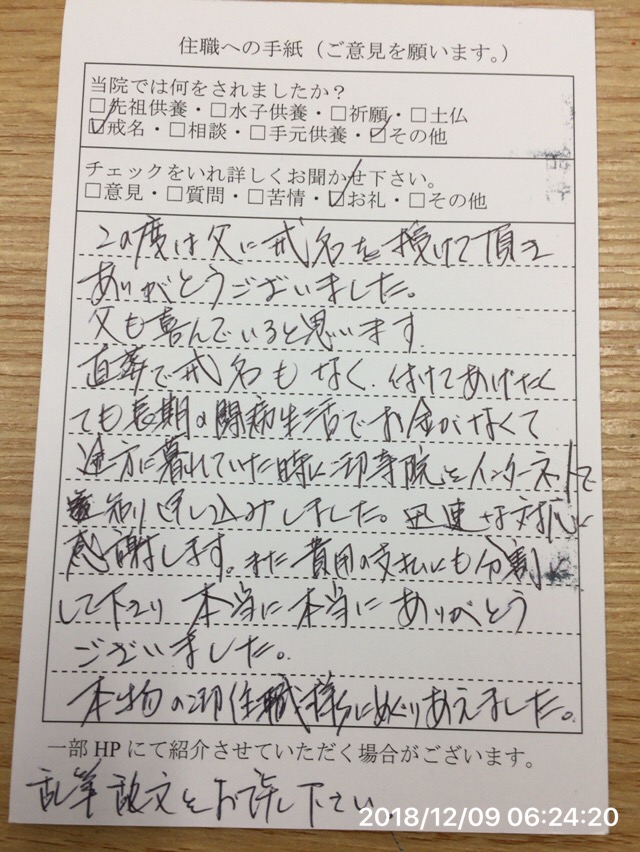 住職への手紙（ご意見を願います。）
当院では何をされましたか？
□先祖供養・□水子供養・□祈願・□土仏
☑戒名・□相談・□手元供養・☑その他
チェックをいれ詳しくお聞かせ下さい。
□意見・□質問・□苦情・☑お礼・□その他
この度は父に戒名を授けて頂き
ありがとうございました。
父も喜んでいると思います
直葬で戒名もなく、付けてあげたく
ても長期の闘病生活でお金がなくて
途方に暮れていた時に 寺院をインターネットで
知り申し込みしました。迅速な対応に
感謝します。また費用の支払にも分割に
して下り本当に本当にありがとう
ございました。
本物の 住職様にめぐりあえました。
一部HPにて紹介させていただく場合がございます。
乱筆乱文をお許し下さい
2018/12/09 06:24:20